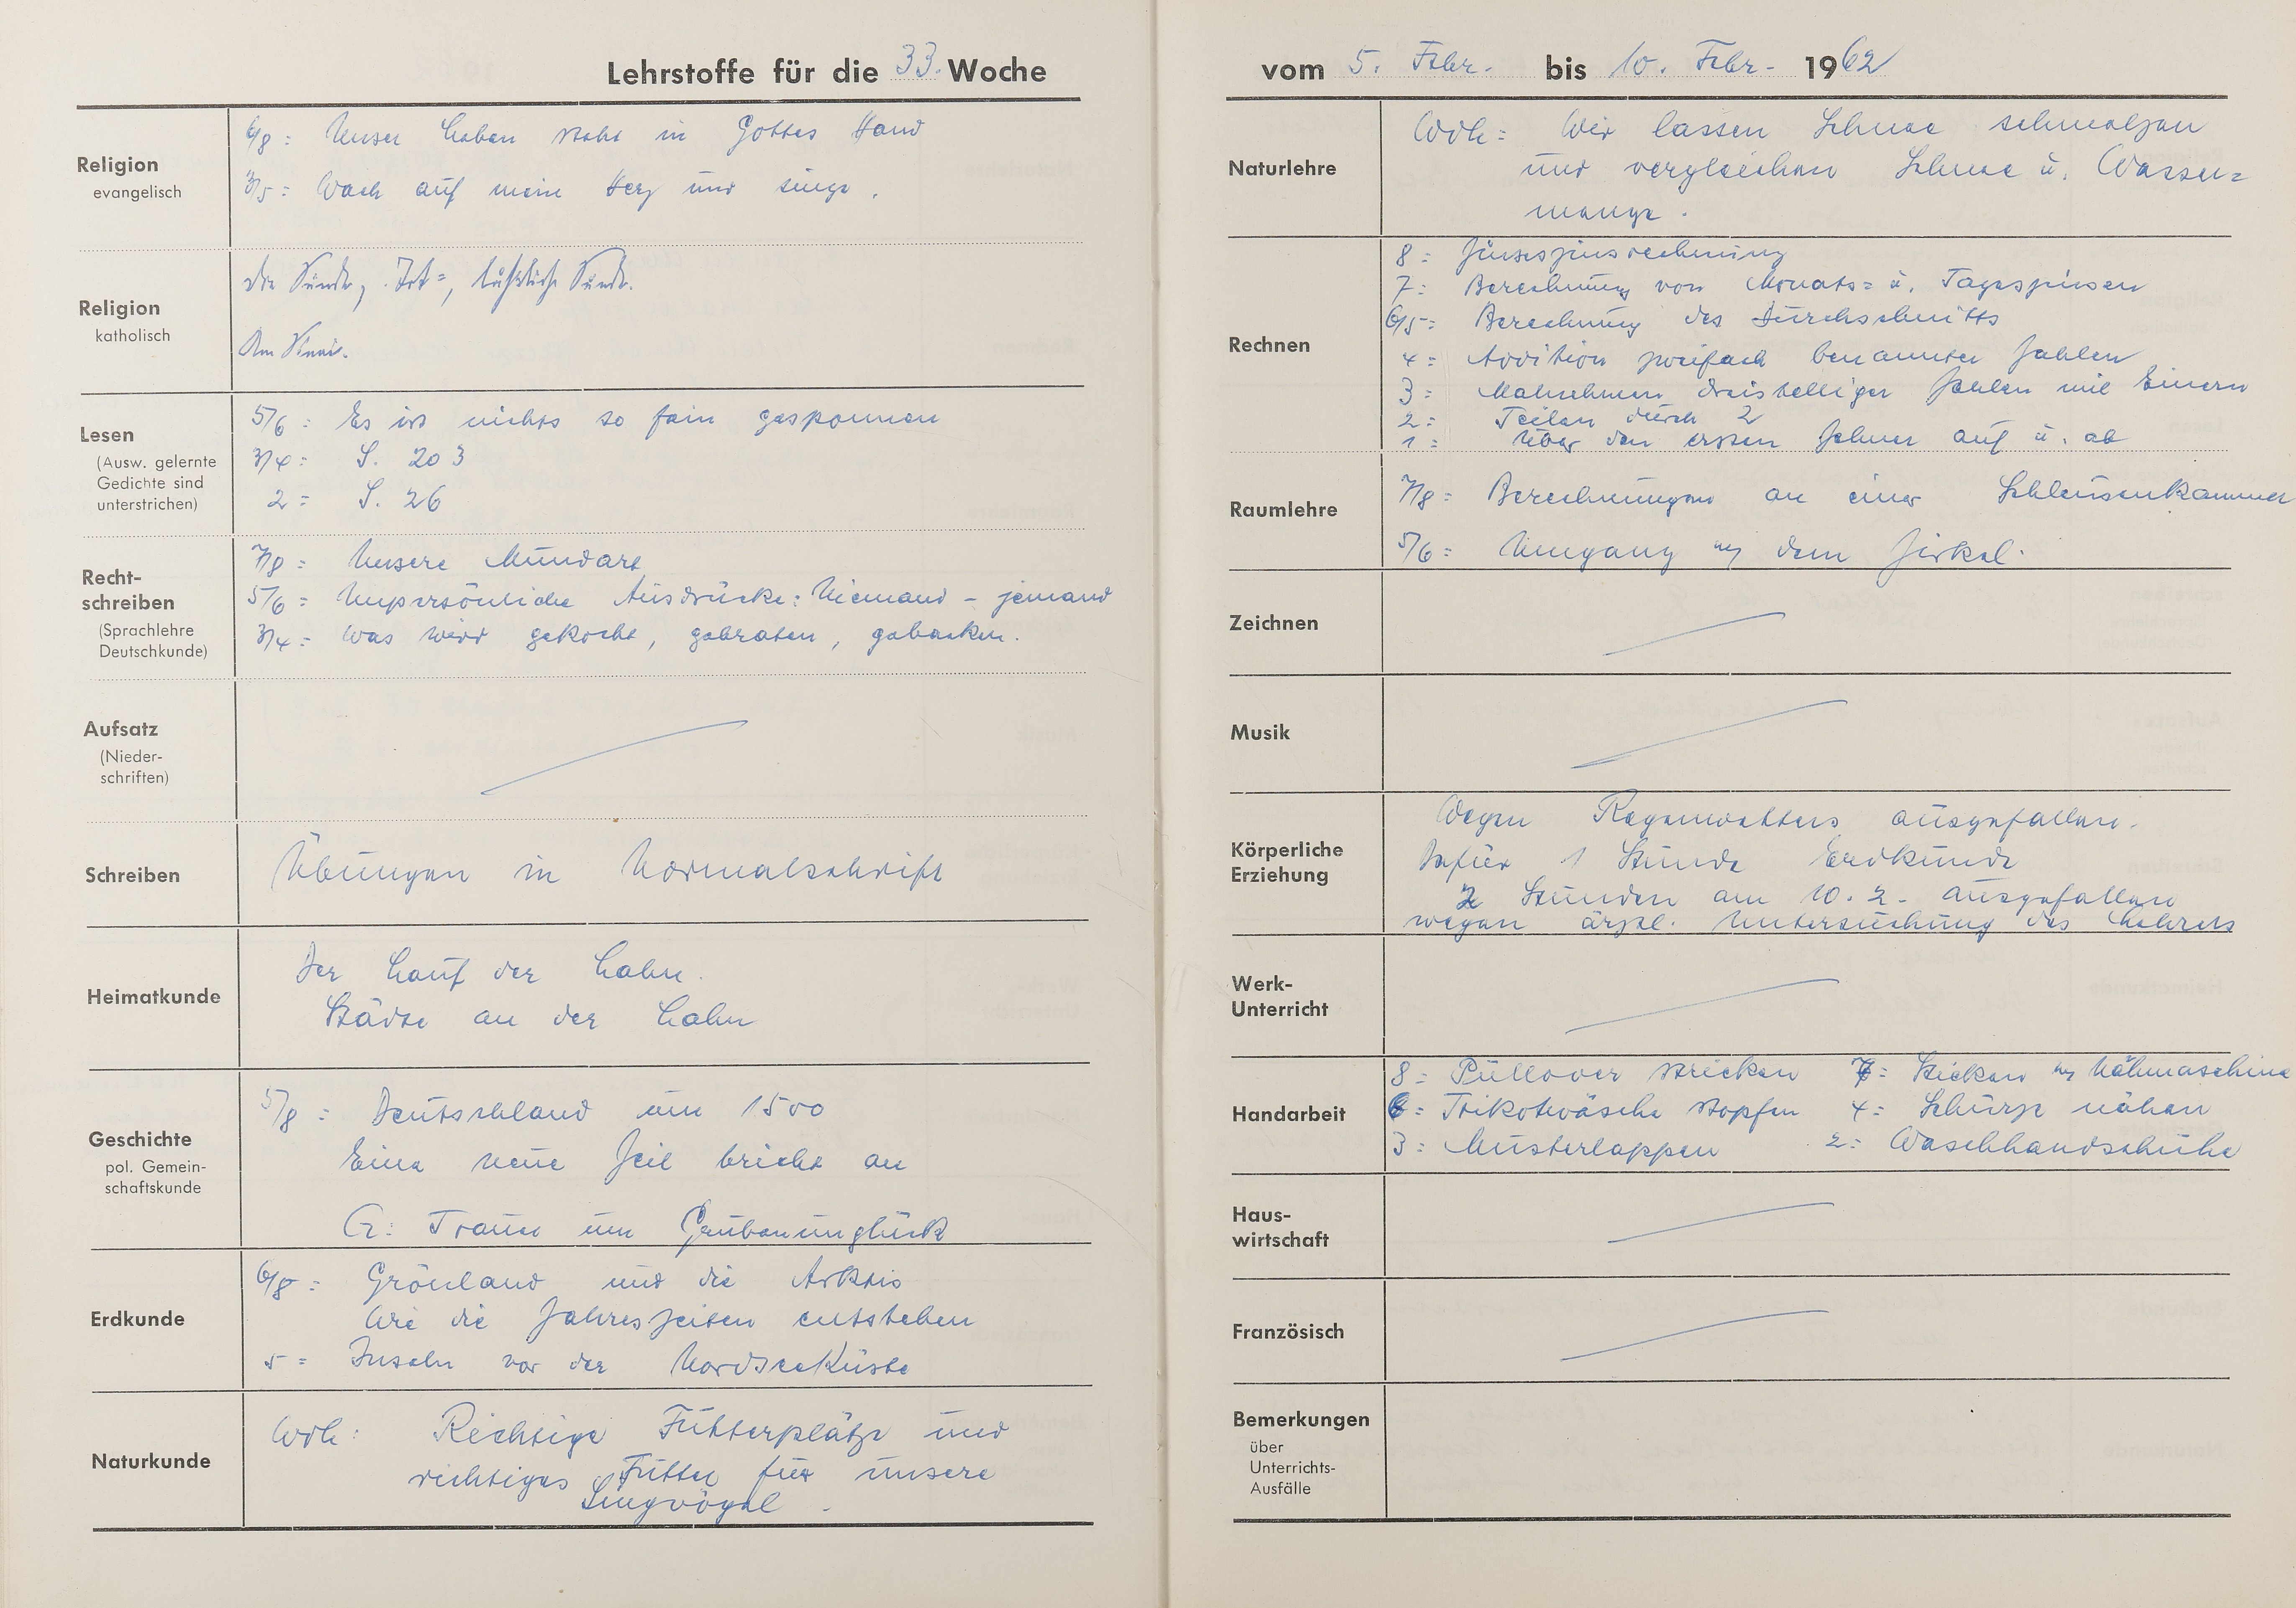 Lehrstoffe für die 33. Woche
Religion
evangelisch
6/8 = Unser Leben steht in Gottes Hand
3/5 = Wach auf mein Herz und singe.
Religion
katholisch
Die Sünde, Tot=, läßliche Sünde.
Lesen
(Ausw. gelernte
Gedichte sind
unterstrichen)
5/6 = Es ist nichts so fein gesponnen
3/4 = S. 203
2 = S. 26
Recht-
schreiben
(Sprachlehre
Deutschkunde)
7/8 = Unsere Mundart
5/6 = Unpersönliche Ausdrücke: Niemand - jemand
3/4 = Was wird gekocht, gebraten, gebacken.
Aufsatz
(Nieder-
schriften)
Schreiben
Übungen in Normalschrift
Heimatkunde
Der Lauf der Lahn.
Städte an der Lahn
Geschichte
pol. Gemein-
schaftskunde
5/8 = Deutschland um 1500
Eine neue Zeit bricht an
G: Trauer um Grubenunglück
Erdkunde
6/8 = Grönland und die Arktis
Wie die Jahreszeiten entstehen
5 = Inseln vor der Nordseeküste
Naturkunde
Wdh: Richtige Futterplätze und
richtiges Futter für unsere
Singvögel.
vom 5. Febr. bis 10. Febr. 1962
Naturlehre
Wdh = Wir lassen Schnee schmelzen
und vergleichen Schnee u. Wasser=
menge.
Rechnen
8 = Zinseszinsrechnung
7 = Berechnung von Monats= u. Tageszinsen
6/5 = Berechnung des Durchschnitts
4 = Addition zweifach benannter Zahlen
3 = Malnehmen dreistelliger Zahlen mit Einern
2 = Teilen durch 2
1 = Über den ersten Zehner auf u. ab
Raumlehre
7/8 = Berechnungen an einer Schleusenkammer
5/6 = Umgang m dem Zirkel.
Zeichnen
Musik
Körperliche
Erziehung
Wegen Regenwetters ausgefallen.
Dafür 1 Stunde Erdkunde
2 Stunden am 10. 2. ausgefallen
wegen ärztl. Untersuchung des Lehrers
Werk-
Unterricht
Handarbeit
8 = Pullover stricken 7 = Sticken m Nähmaschine
6 = Trikotwäsche stopfen 4 = Schürze nähen
3 = Musterlappen 2 = Waschhandschuhe
Haus-
wirtschaft
Französisch
Bemerkungen
über
Unterrichts-
Ausfälle